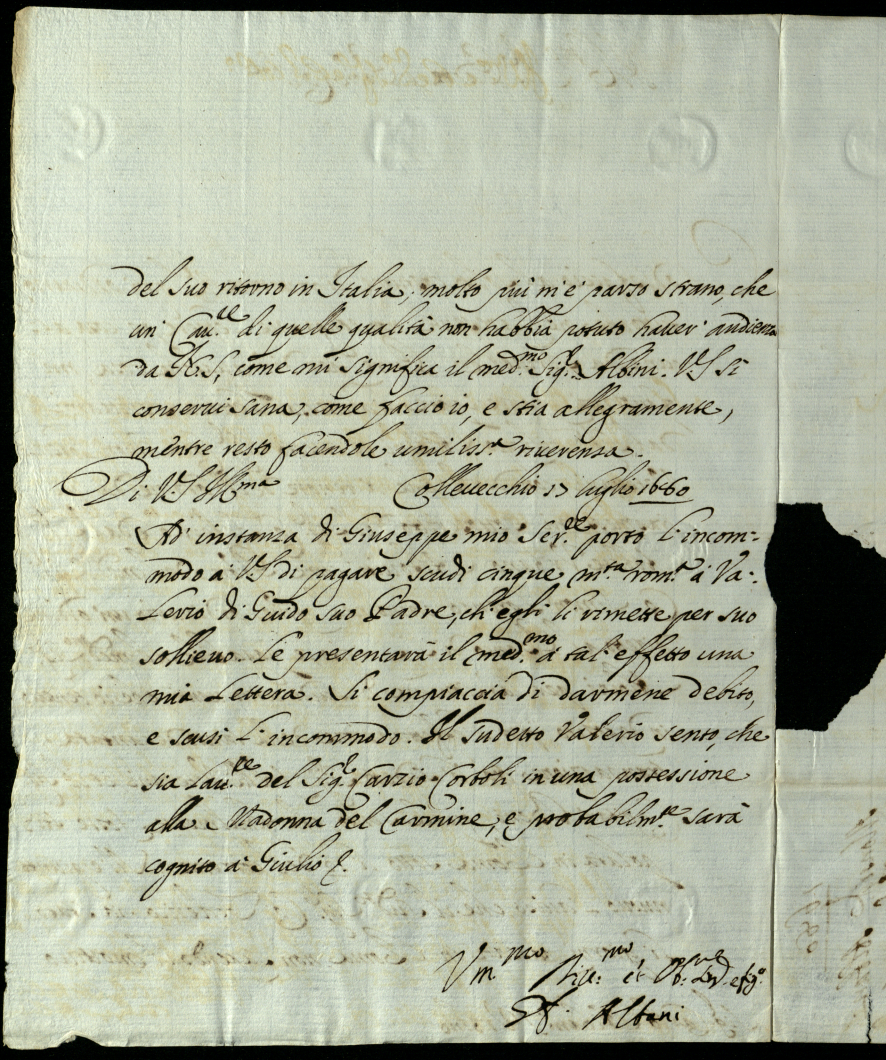 del suo ritorno in Italia, molto più m'è parso strano, che
un Cau.re di quelle qualità non habbia potuto hauer' audienza
da N. S., come mi significa il med.mo Sig.r Albini. V.S. si
conserui sana, come faccio io, e stia allegramente,
mentre resto facendole umiliss.a riuerenza.
Di V.S. Ill.ma Colleuecchio 17 luglio 1660
Ad' instanza di Giuseppe mio Ser.re porto l'incom-
modo à V.S. di pagare scudi cinque m.ta rom.a à Va-
lerio di Guido suo Padre, ch'egli li rimette per suo
sollieuo. Le presentarà il med.mo à tal' effetto una
mia lettera. Si compiaccia di darmene debito,
e scusi l'incommodo. Il sudetto Valerio sento, che
sia Lau.re del Sig.r Curzio Corboli in una possessione
alla Madonna del Carmine, e probabilm.te sarà
cognito à Giulio &.
Um.mo et
Albani